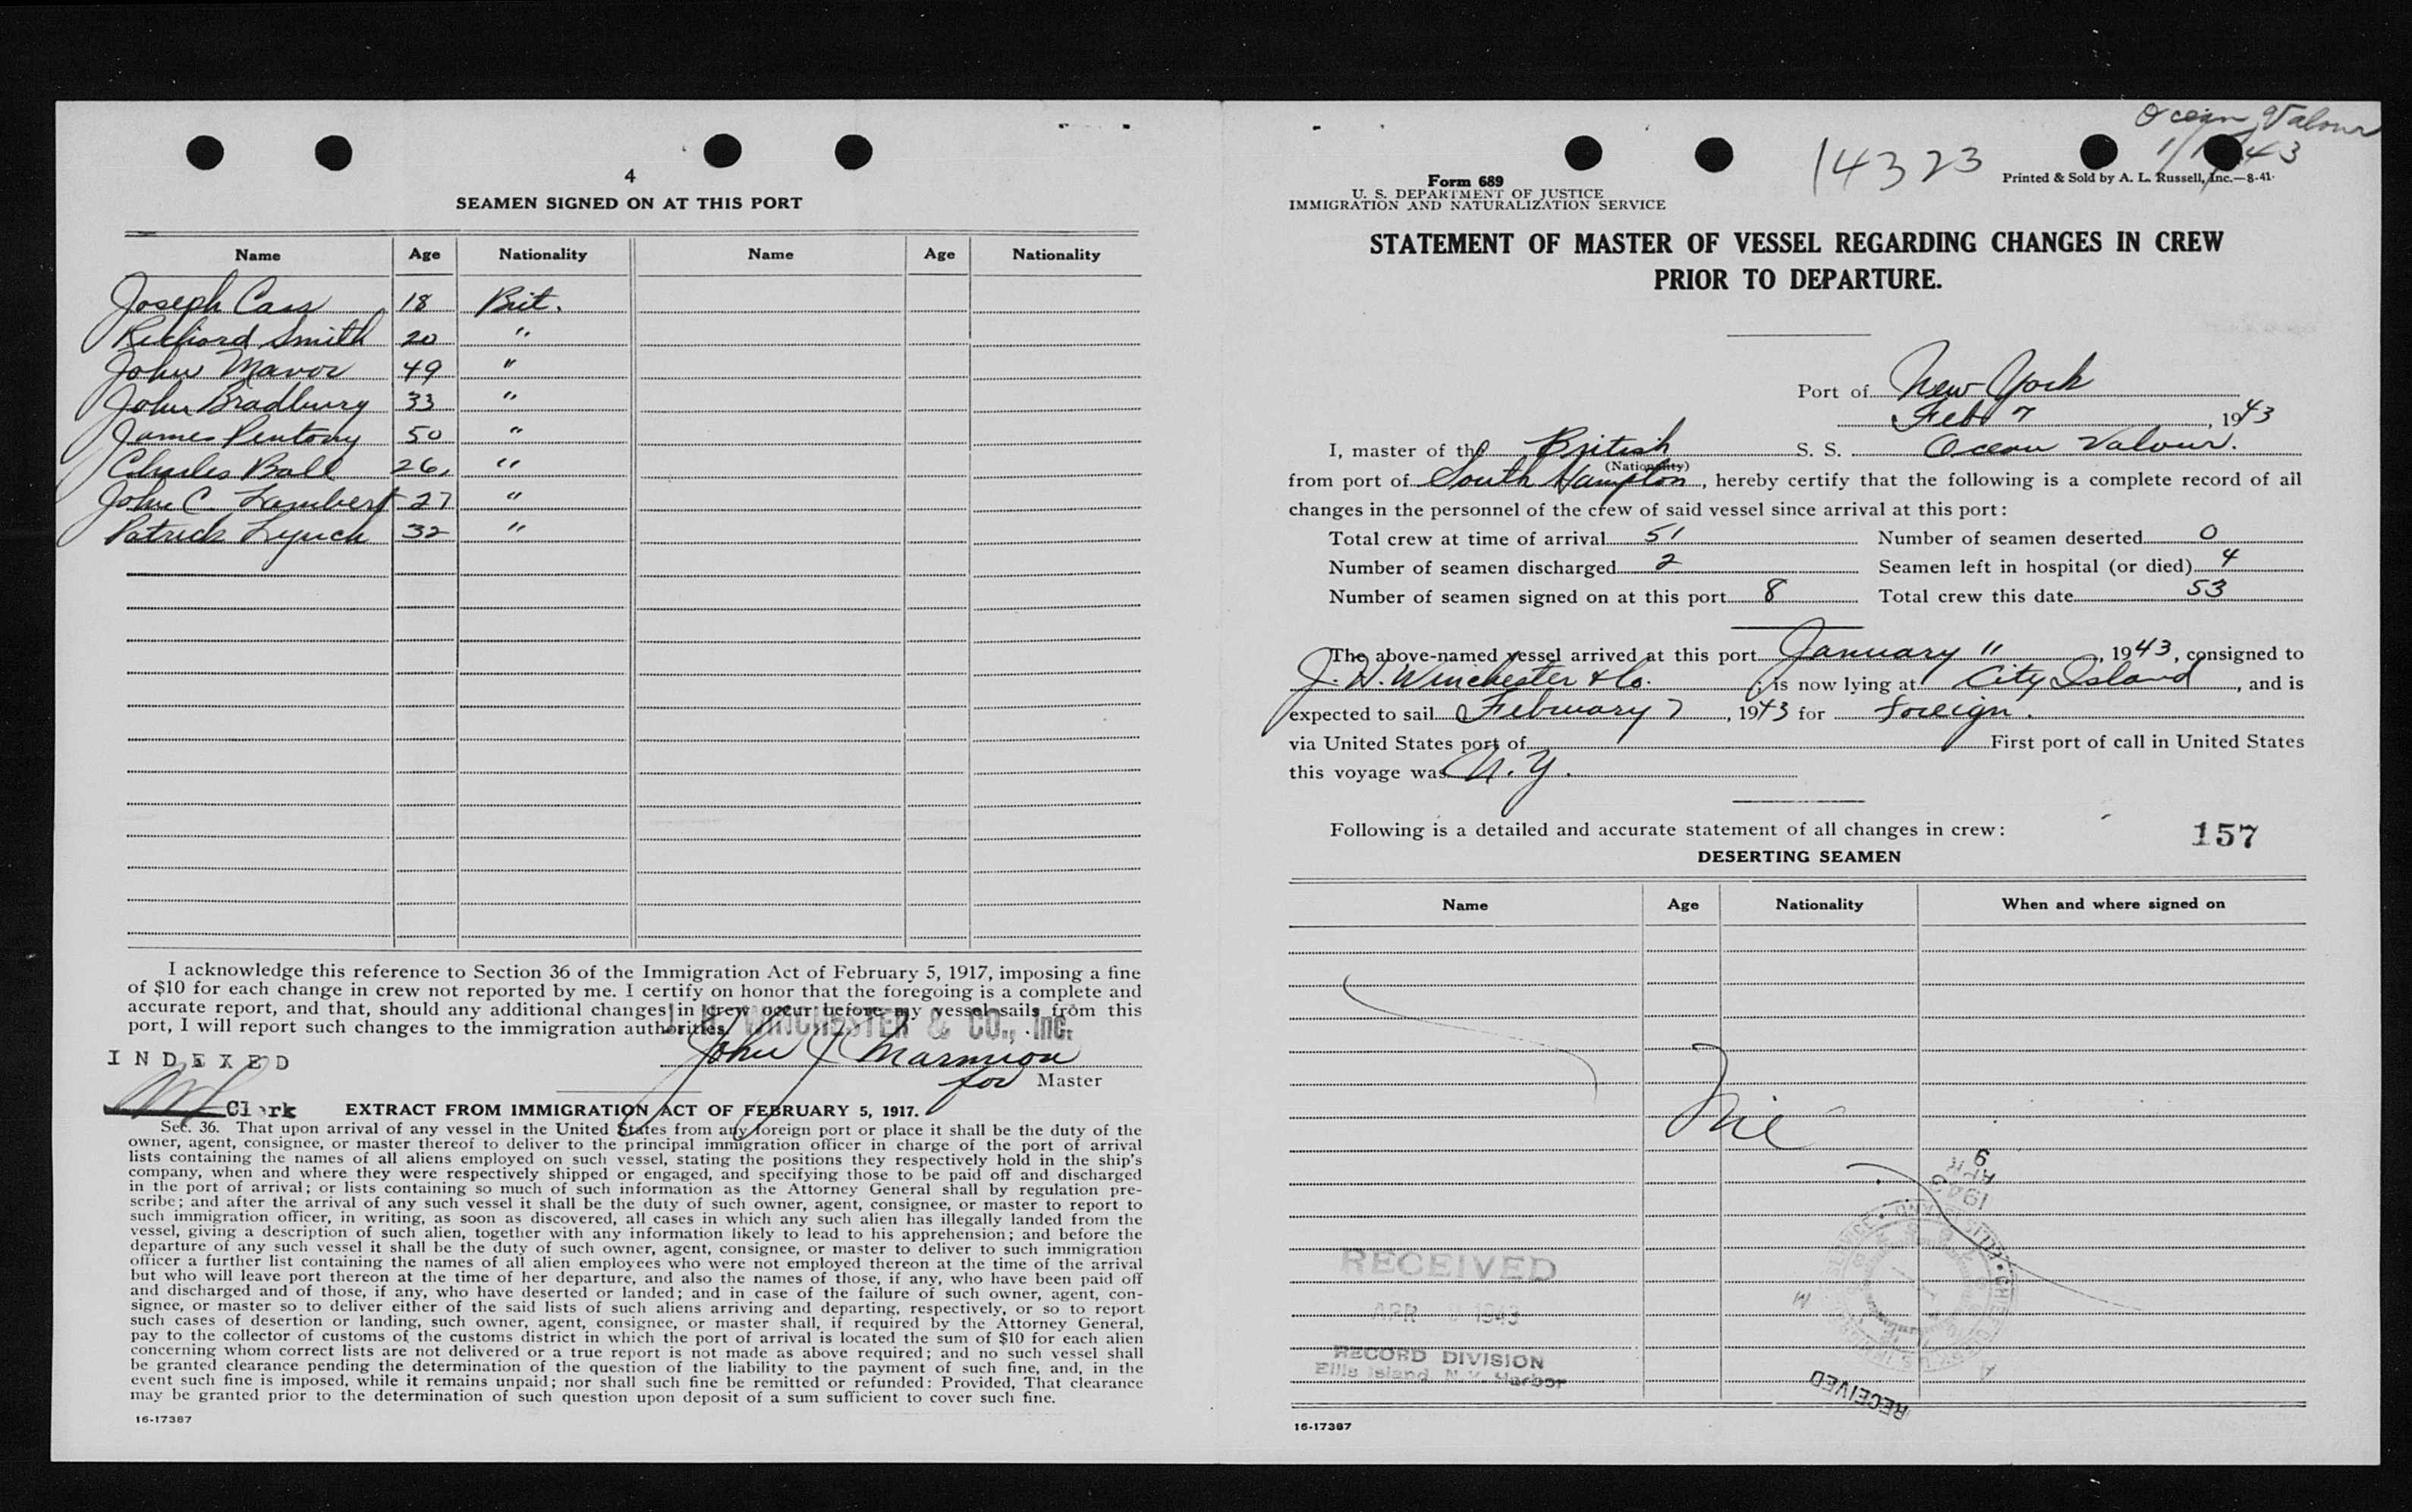 4
SEAMEN SIGNED ON AT THIS PORT
Name Age Nationality Name Age Nationality
Joseph Cass 18 Brit.
Richard Smith 20 "
John Mavor 49 "
John Bradbury 33 "
James Pentony 50 "
Charles Ball 26 "
John C. Lambert 27 "
Patrick Lynch 32 "
I acknowledge this reference to Section 36 of the Immigration Act of February 5, 1917, imposing a fine
of $10 for each change in crew not reported by me. I certify on honor that the foregoing is a complete and
accurate report, and that, should any additional changes in crew occur before my vessel sails from this
port, I will report such changes to the immigration authorities.
J. H. WINCHESTER & CO., Inc.
John J Marmion
for Master
INDEXED
Clerk
EXTRACT FROM IMMIGRATION ACT OF FEBRUARY 5, 1917.
Sec. 36. That upon arrival of any vessel in the United States from any foreign port or place it shall be the duty of the
owner, agent, consignee, or master thereof to deliver to the principal immigration officer in charge of the port of arrival
lists containing the names of all aliens employed on such vessel, stating the positions they respectively hold in the ship's
company, when and where they were respectively shipped or engaged, and specifying those to be paid off and discharged
in the port of arrival; or lists containing so much of such information as the Attorney General shall by regulation pre-
scribe; and after the arrival of any such vessel it shall be the duty of such owner, agent, consignee, or master to report to
such immigration officer, in writing, as soon as discovered, all cases in which any such alien has illegally landed from the
vessel, giving a description of such alien, together with any information likely to lead to his apprehension; and before the
departure of any such vessel it shall be the duty of such owner, agent, consignee, or master to deliver to such immigration
officer a further list containing the names of all alien employees who were not employed thereon at the time of the arrival
but who will leave port thereon at the time of her departure, and also the names of those, if any, who have been paid off
and discharged and of those, if any, who have deserted or landed; and in case of the failure of such owner, agent, con-
signee, or master so to deliver either of the said lists of such aliens arriving and departing, respectively, or so to report
such cases of desertion or landing, such owner, agent, consignee, or master shall, if required by the Attorney General,
pay to the collector of customs of the customs district in which the port of arrival is located the sum of $10 for each alien
concerning whom correct lists are not delivered or a true report is not made as above required; and no such vessel shall
be granted clearance pending the determination of the question of the liability to the payment of such fine, and, in the
event such fine is imposed, while it remains unpaid; nor shall such fine be remitted or refunded: Provided, That clearance
may be granted prior to the determination of such question upon deposit of a sum sufficient to cover such fine.
16-17387
Ocean Valour
14323
Form 689
U. S. DEPARTMENT OF JUSTICE
IMMIGRATION AND NATURALIZATION SERVICE
Printed & Sold by A. L. Russell, Inc.—8-41-
STATEMENT OF MASTER OF VESSEL REGARDING CHANGES IN CREW
PRIOR TO DEPARTURE.
Port of New York
Feb 7, 1943
I, master of the British S. S. Ocean Valour.
(Nationality)
from port of South Hampton, hereby certify that the following is a complete record of all
changes in the personnel of the crew of said vessel since arrival at this port:
Total crew at time of arrival 51 Number of seamen deserted 0
Number of seamen discharged 2 Seamen left in hospital (or died) 4
Number of seamen signed on at this port 8 Total crew this date 53
The above-named vessel arrived at this port January 11, 1943, consigned to
J. H. Winchester & Co., is now lying at City Island, and is
expected to sail February 7, 1943 for foreign.
via United States port of First port of call in United States
this voyage was N.Y.
Following is a detailed and accurate statement of all changes in crew:
157
DESERTING SEAMEN
Name Age Nationality When and where signed on
Nil
1943
APR
9
RECEIVED
APR 1943
RECORD DIVISION
Ellis Island, N. Y. Harbor
RECEIVED
16-17387